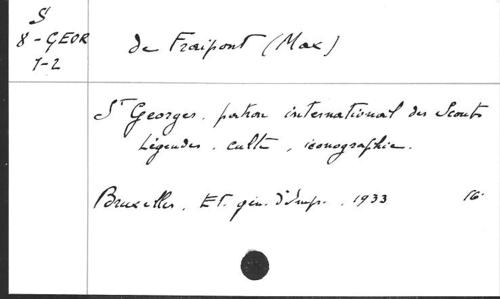 S
8 - GEOR
1-2
de Fraipont (Max)
St Georges. patron international des Scouts
Légendes. culte, iconographie.
Bruxelles. Et. gén. d'Imp., 1933 16°